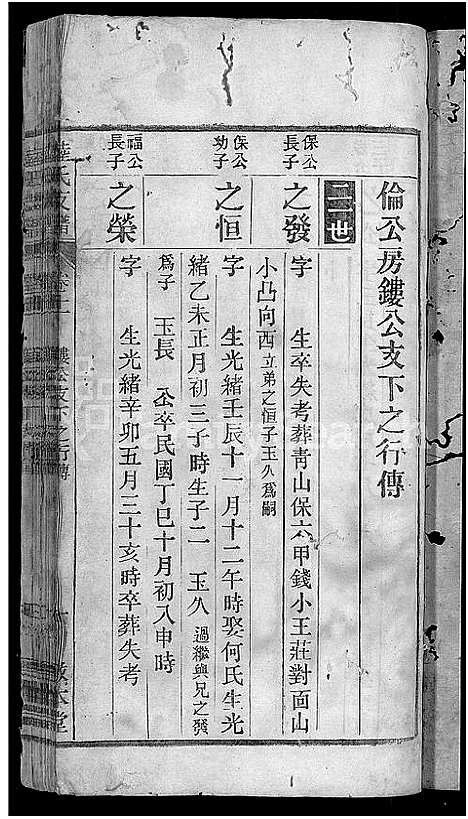 倫公房鏤公支下之行傳
二世
保公長子
之發 字 生卒失考葬青山保六甲錢小王莊對面山
小凸向西立弟之恒子玉久為嗣
保公幼子
之恒 字 生光緒壬辰十一月十二午時娶何氏生光
緒乙未正月初三子時生子二 玉久 過繼與兄之發
為子 玉長 公卒民國丁巳十月初八申時
福公長子
之榮 字 生光緒辛卯五月三十亥時卒葬失考
氏支譜
鏤公支下之行傳
本堂